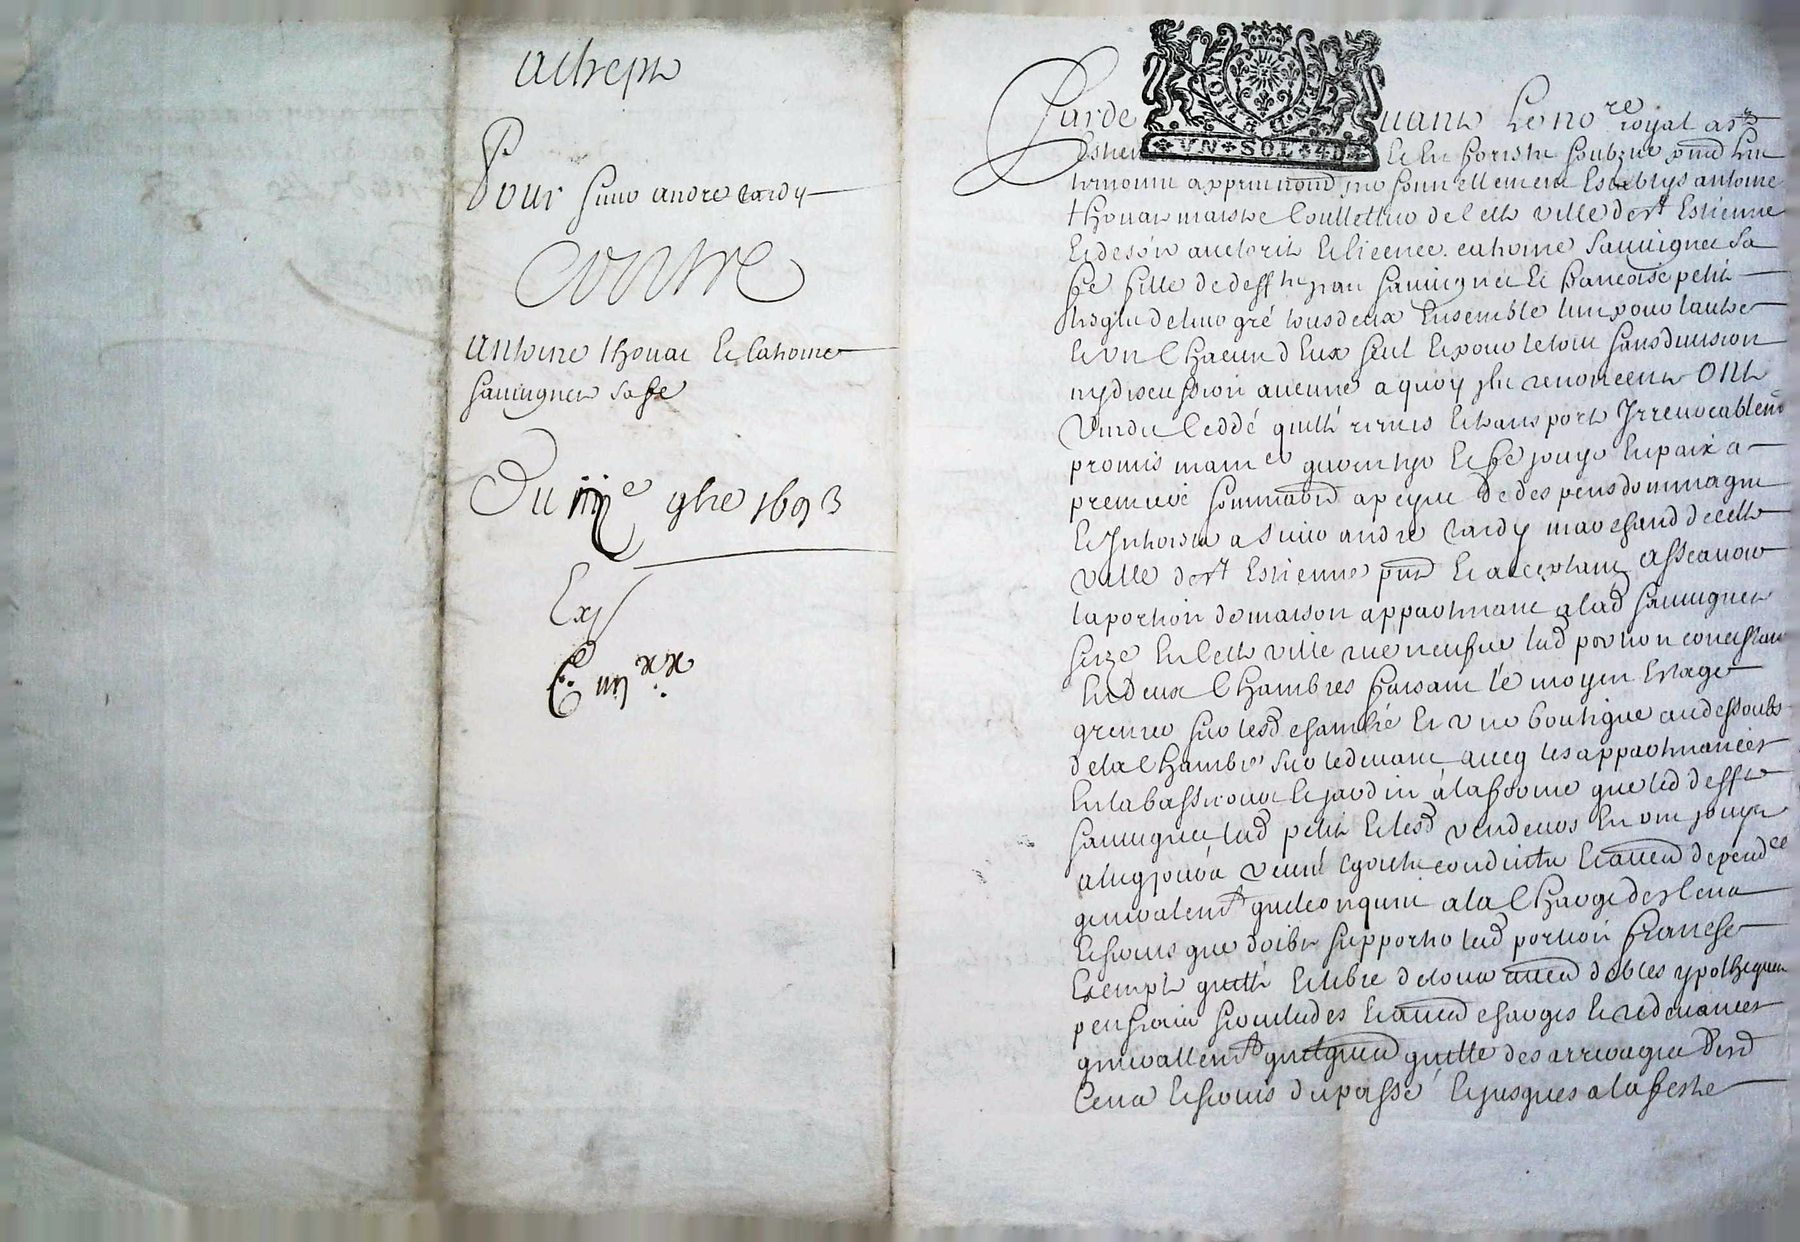 Achept
Pour sieur andre tardy
Contre
Antoine thouar et catherine
sauvignet sa fe
Du iiije 9bre 1693
Exp
GENERALITE DE LION
VN SOL 4D
Pardevant le nore royal a st
Estien et en forest soubzne
personnellement Establys antoine
thouar maistre de cette ville de st Estienne
et de son auctorité et licence catherine sauvignet sa
fe fille de defft jean sauvignet et francoise petit
de leur gré tous deux Ensemble lun pour lautre
et un Chacun d Eux seul et pour le tout sans division
ny discussion aucune a quoy ils renoncent ONt
Vendu Ceddé quitté remis et transporté Irrevocablemt
promis maintenir garentyr et fe jouyr En paix a
premiere sommaon a peyne de despens dommages
et Intherets a Sieur andre tardy marchand de cette
ville de st Estienne pnt et acceptant assçavoir
la portion de maison appartenant a lad sauvignet
size En cette ville rue neufve lad portion concistant
En deux Chambres faisant le moyen Estage
grenier sur lesd chambre et une boutique au dessoubs
de la Chambre sur le devant avecq les appartenances
En la basse cour et jardin a la forme que led defft
sauvignet lad petit et lesd vendeurs En ont jouy
veues Egouts conduitte et autres dependces
generalemt quelconques a la Charge des Cens
et servis que doibt supporter lad portion franche
Exempte quitte et libre de tous autres debtes ypotheques
pensions et autres charges et redevances
generallemt quelquond quitte des arrerages desd
Cens et servis du passé et jusques a la feste